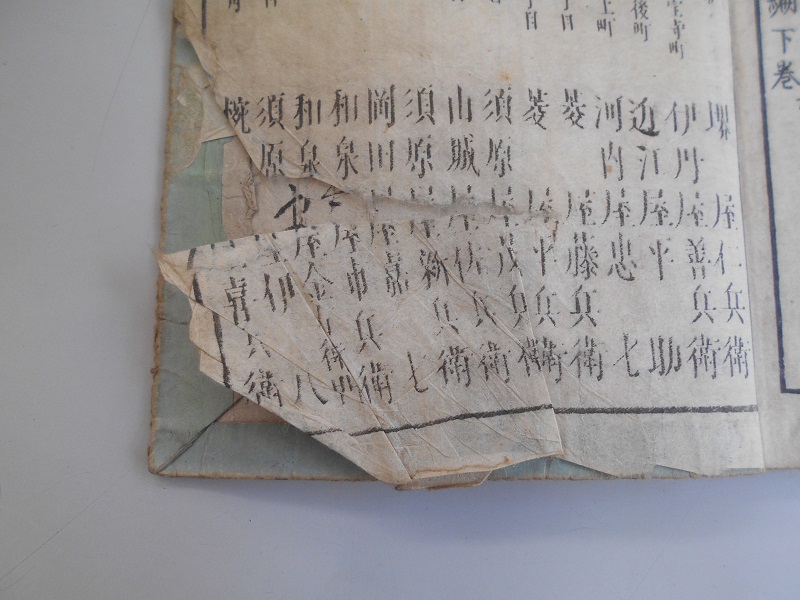 下巻
屋仁兵衛
伊丹屋善兵衛
近江屋平助
河内屋忠七
菱屋藤兵衛
菱屋平兵衛
須原屋茂兵衛
山城屋佐兵衛
須原屋新兵衛
岡田屋嘉七
和泉屋市兵衛
和泉屋金右衛門
須原屋伊八
喜兵衛